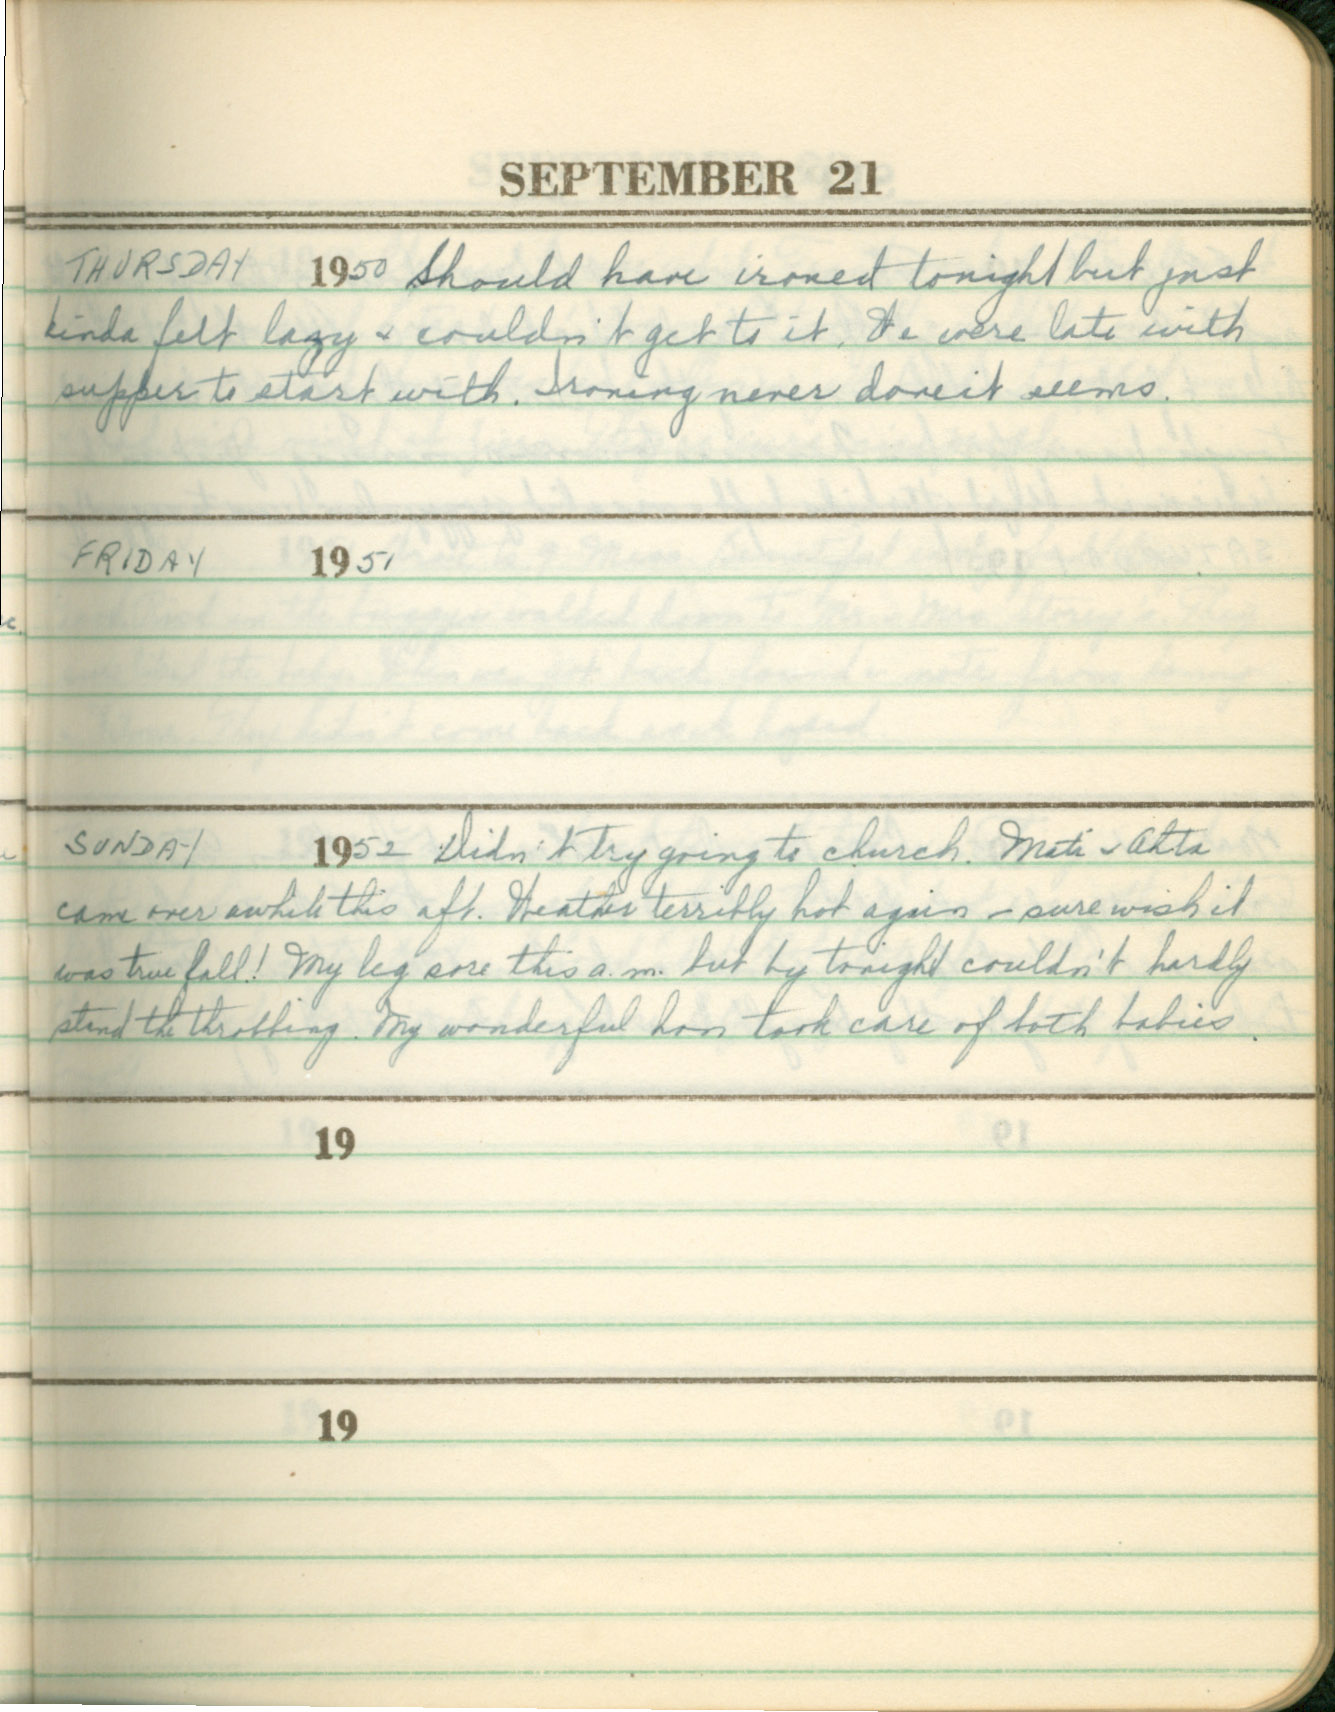 SEPTEMBER 21
THURSDAY 1950 Should have ironed tonight but just
kinda felt lazy & couldn't get to it. We were late with
supper to start with. Ironing never done it seems.
FRIDAY 1951
SUNDAY 1952 Didn't try going to church. Mati & Ahta
came over awhile this aft. Weather terribly hot again - sure wish it
was true fall! My leg sore this a.m. but by tonight couldn't hardly
stand the throbbing. My wonderful hon took care of both babies.
19
19